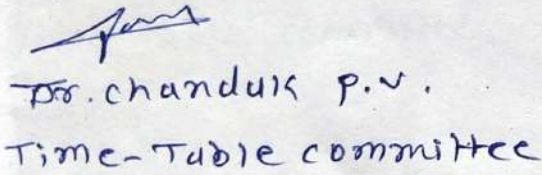 Dr. chandak P.V.
Time-Table committee